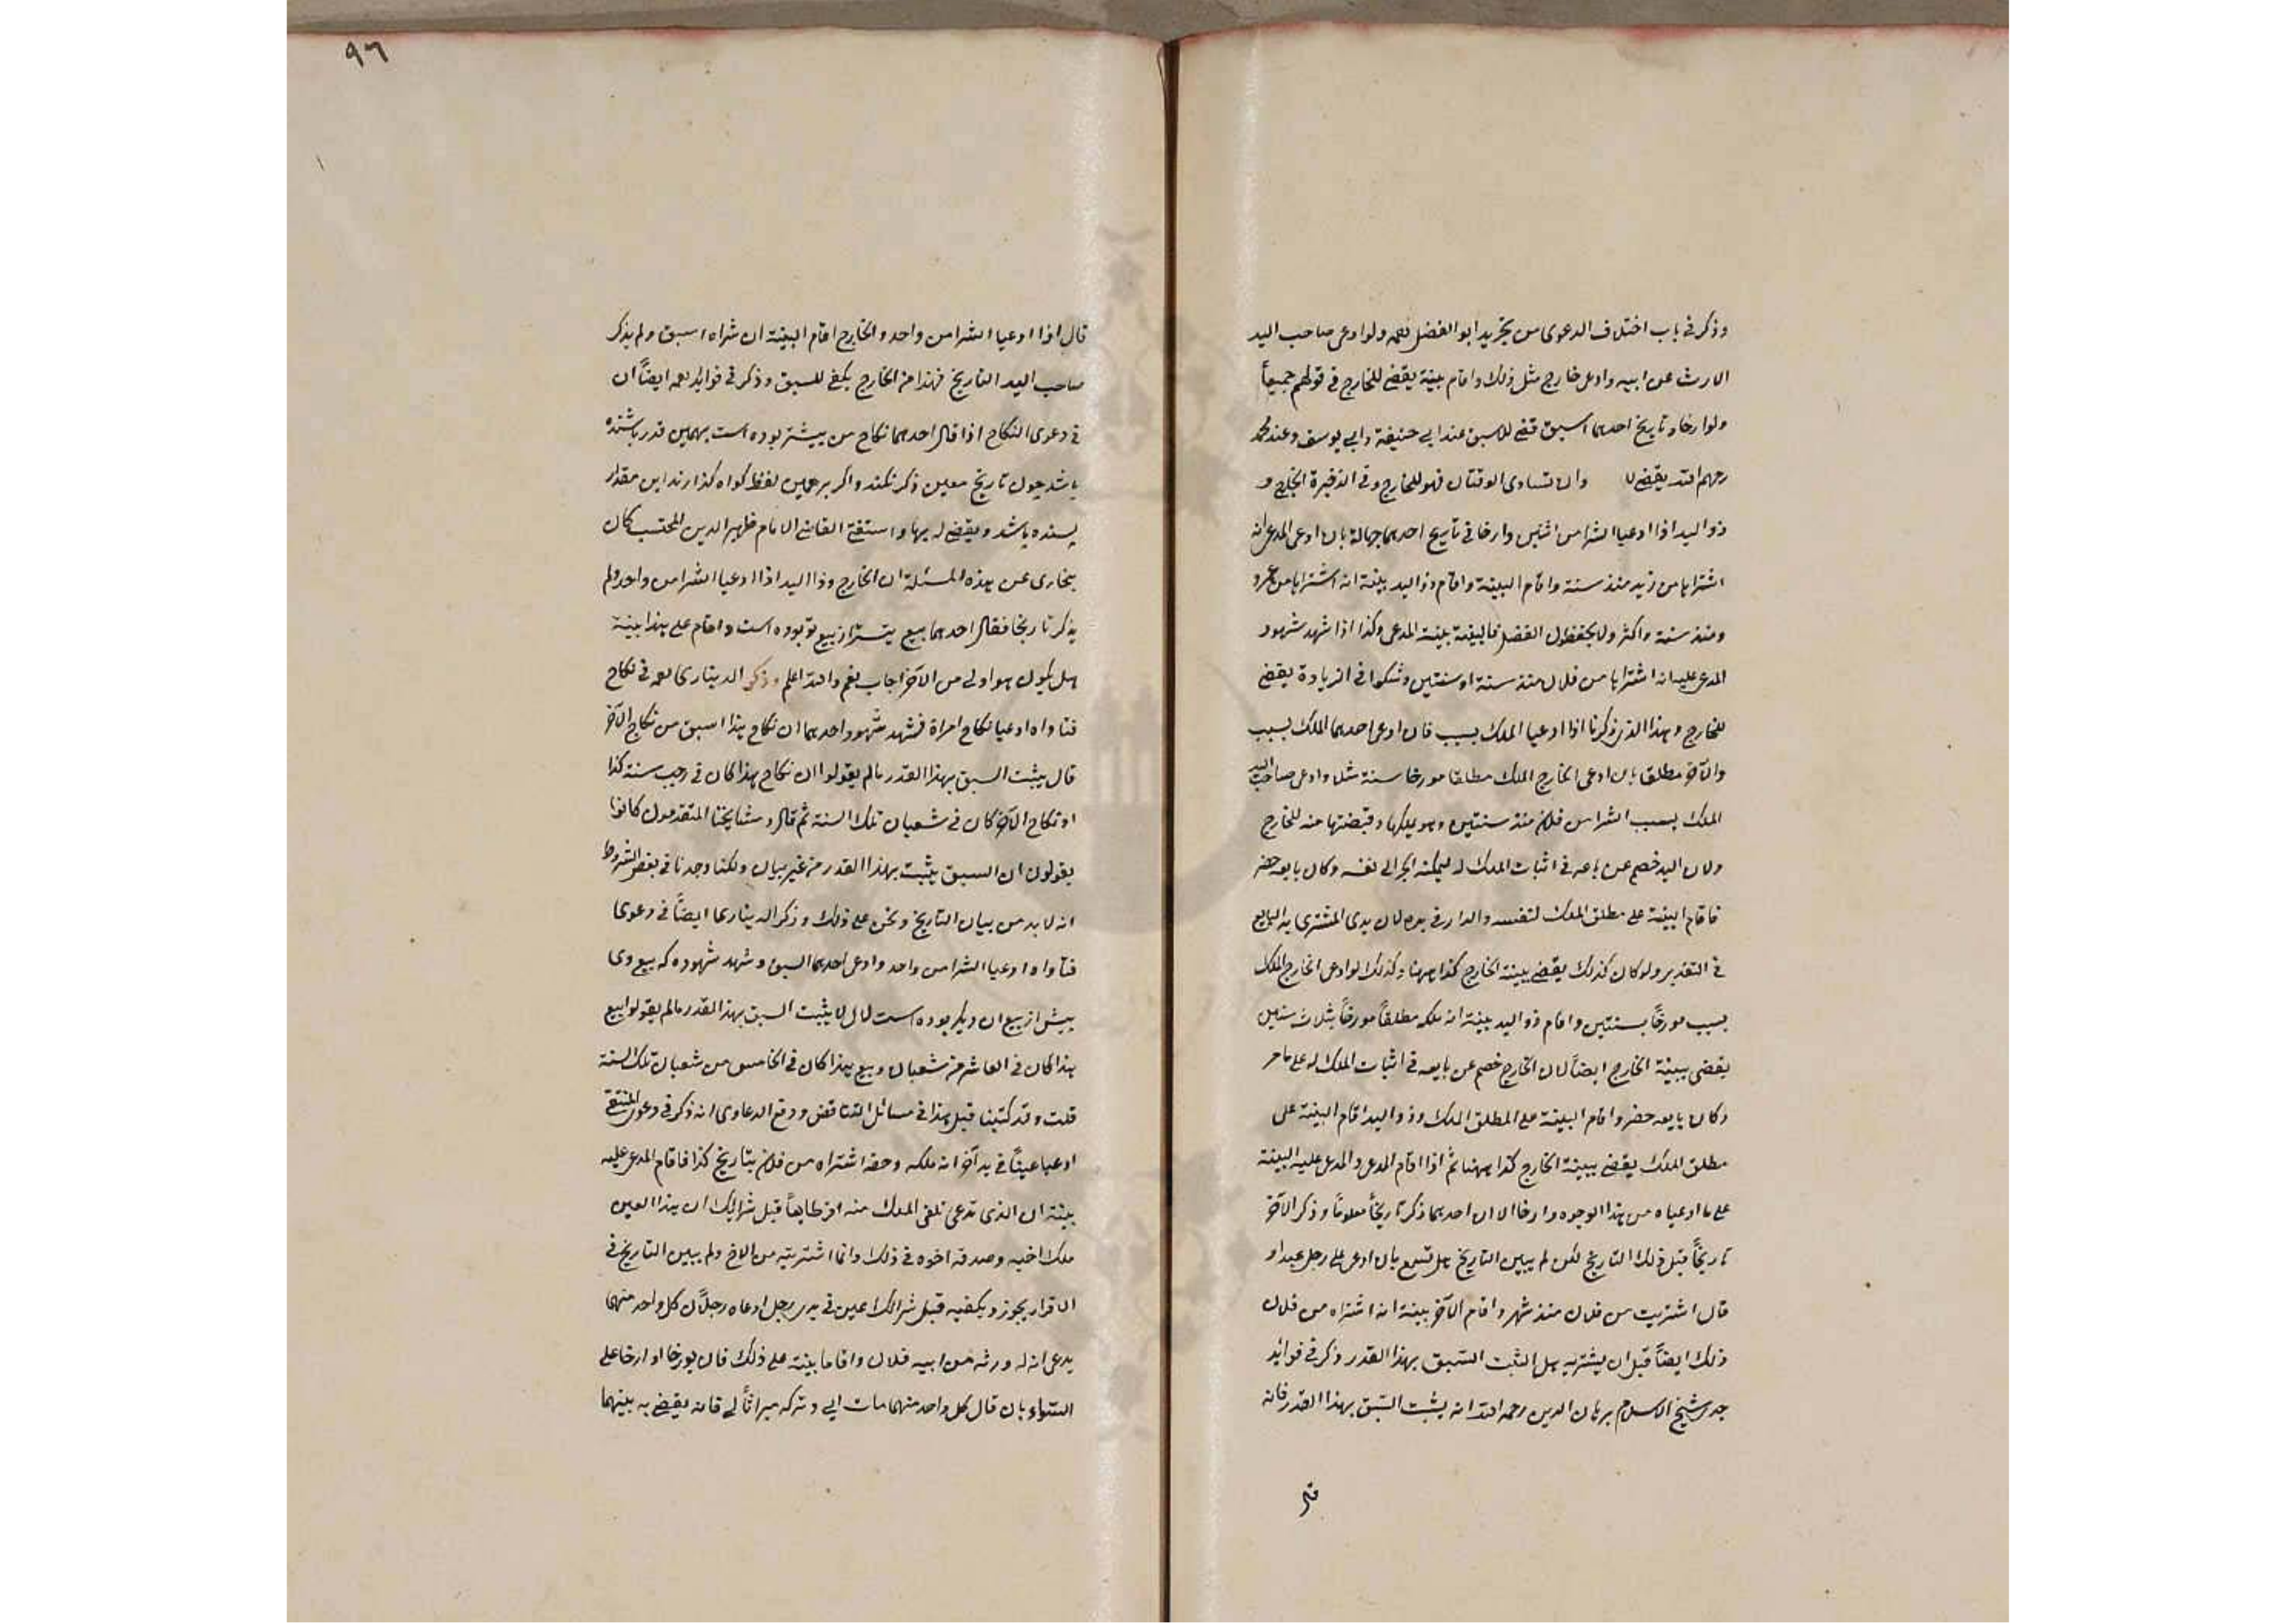 وذكر في باب اختلاف الدعوى من تجريد ابو الفضل رحمه ولو ادعى صاحب اليد
الارث عن ابيه وادعى خارج مثل ذلك واقام بينة يقضى للخارج في قولهم جميعاً
ولو ارخا وتاريخ احدهما اسبق قضى للاسبق عند ابي حنيفة وابي يوسف وعند محمد
رحمهم الله يقضى وان تساوى الوقتان فهو للخارج وفي الذخيرة الخارج و
ذو اليد اذا ادعيا الشرا من اثنين وارخا في تاريح احدهما جهالة بان ادعى المدعى انه
اشتراها من زيد منذ سنة واقام البينة واقام ذو اليد بينة انه اشتراها من عمرو
ومنذ سنة واكثر ولا يحفظون الفضل فالبينة بينة المدعى وكذا اذا شهد شهود
المدعى عليه انه اشتراها من فلان منذ سنة او سنتين وشكوا في الزيادة يقضى
للخارج وهذا الذى ذكرنا اذا ادعيا الملك بسبب فان ادعى احدهما الملك بسبب
والآخر مطلقا بان ادعى الخارج الملك مطلقا مورخا سنة مثلا وادعى صاحب اليد
الملك بسبب الشرا من فلان منذ سنتين وهو يملكها وقبضتها منه للخارج
ولان اليد خصم عن بايعه في اثبات الملك له ليمكنه الجر الى نفسه وكان بايعه حضر
فاقام البينة على مطلق الملك لنفسه والدار في يده لان يدى المشترى يد البايع
في التقدير ولو كان كذلك يقضى ببينة الخارج كذا ههنا وكذلك لو ادعى الخارج الملك
بسبب مورخاً بسنتين واقام ذو اليد بينة انه ملكه مطلقاً مورخاً بثلاث سنين
يقضى ببينة الخارج ايضاً لان الخارج خصم عن بايعه في اثبات الملك له على ما مر
وكان بايعه حضر واقام البينة على المطلق الملك وذو اليد اقام البينة على
مطلق الملك يقضى ببينة الخارج كذا ههنا ثم اذا اقام المدعى والمدعى عليه البينة
على ما ادعياه من هذا الوجوه وارخا الا ان احدهما ذكر تاريخاً معلوماً وذكر الآخر
تاريخاً قبل ذلك التاريخ لكن لم يبين التاريخ هل تسمع بان ادعى على رجل عبدا و
قال اشتريت من فلان منذ شهر واقام الآخر بينة انه اشتراه من فلان
ذلك ايضاً قبل ان يشتريه هل الثبت السبق بهذا القدر ذكر في فوائد
جدى شيخ الاسلام برهان الدين رحمه الله انه يثبت السبق بهذا القدر فانه
قال
٩٦
قال اذا ادعيا الشرا من واحد والخارج اقام البينة ان شراه اسبق ولم يذكر
صاحب اليد التاريخ فهذا من الخارج يكفى للسبق وذكر في فوائد رحمه ايضاً ان
في دعوى النكاح اذا قال احدهما نكاح من بيشتر بوده است بهمين قدر بسنده
باشد چون تاريخ معين ذكر نكند واكر بر همين لفظ كواه كذارند اين مقدار
بسنده باشد ويقضى له بها واستفتى القاضى الامام ظهير الدين المحتسب كان
ببخارى عن هذه المسئلة ان الخارج وذا اليد اذا ادعيا الشرا من واحد ولم
يذكر تاريخا فقال احدهما بيع بيشتر از بيع تو بوده است واقام على هذا بينة
هل يكون هو اولى من الآخر اجاب نعم والله اعلم وذكر الدينارى رحمه في نكاح
فتاواه ادعيا نكاح امراة فشهد شهود احدهما ان نكاح هذا اسبق من نكاح الآخر
قال يثبت السبق بهذا القدر مالم يقولوا ان نكاح هذا كان في رجب سنة كذا
او نكاح الآخر كان في شعبان تلك السنة ثم قال ومشايخنا المتقدمون كانوا
يقولون ان السبق يثبت بهذا القدر من غير بيان ولكنا وجدنا في بعض الشروط
انه لابد من بيان التاريخ ونحن على ذلك وذكر الدينارى ايضاً في دعوى
فتاواه ادعيا الشرا من واحد وادعى احدهما السبق وشهد شهوده كه بيع وى
بيش از بيع ان ديكر بوده است قال لا يثبت السبق بهذ القدر مالم يقولوا بيع
هذا كان في العاشر من شعبان وبيع هذا كان في الخامس من شعبان تلك السنة
قلت وقد كتبنا قبل هذا في مسائل التناقض ودفع الدعاوى انه ذكر في دعوى المنتقى
ادعيا عيناً في يد آخر انه ملكه وحقه اشتراه من فلان بتاريخ كذا فاقام المدعى عليه
بينة ان الذى تدعى تلقى الملك منه اقر طايعاً قبل شرائك ان هذا العين
ملك اخيه وصدقه اخوه في ذلك وانا اشتريته من الاخ ولم يبين التاريخ في
الاقرار يجوز ويكفيه قبل شرائك عين في يدى رجل ادعاه رجلان كل واحد منهما
يدعى انه له ورثه من ابيه فلان واقاما بينة على ذلك فان يورخا او ارخا على
السواء بان قال كل واحد منهما مات ابي وتركه ميراثاً لي فانه يقضى به بينهما